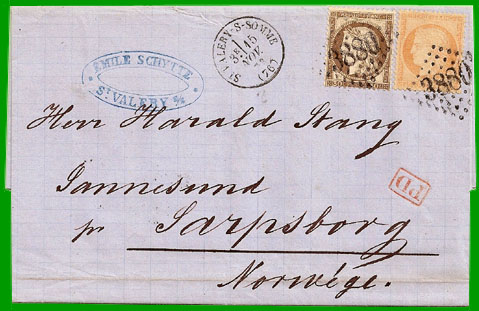 ST VALERY-S-SOMME
3E 15 NOV.
(76)
3880
3880
EMILE SCHYTTE
ST VALERY S/S
Herr Harald Stang
PD
Sannesund
pr Sarpsborg
Norwége.